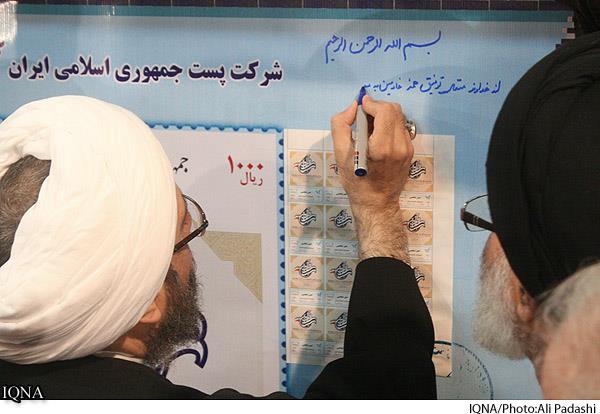 بسم الله الرحمن الرحیم
از خداوند متعال توفیق همه خادمین به
شرکت پست جمهوری اسلامی ایران
۱۰۰۰
ریال
جمه
IQNA
IQNA/Photo:Ali Padashi